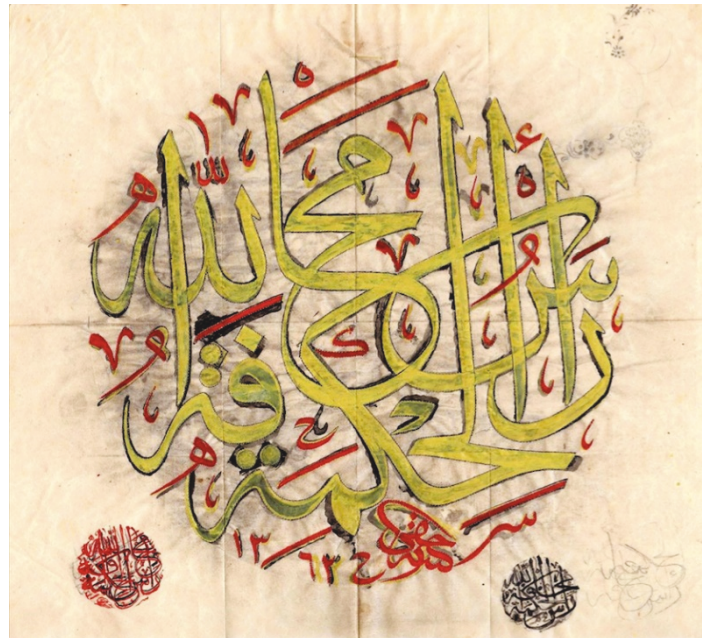 رأس الحكمة مخافة الله
١٣٦٣